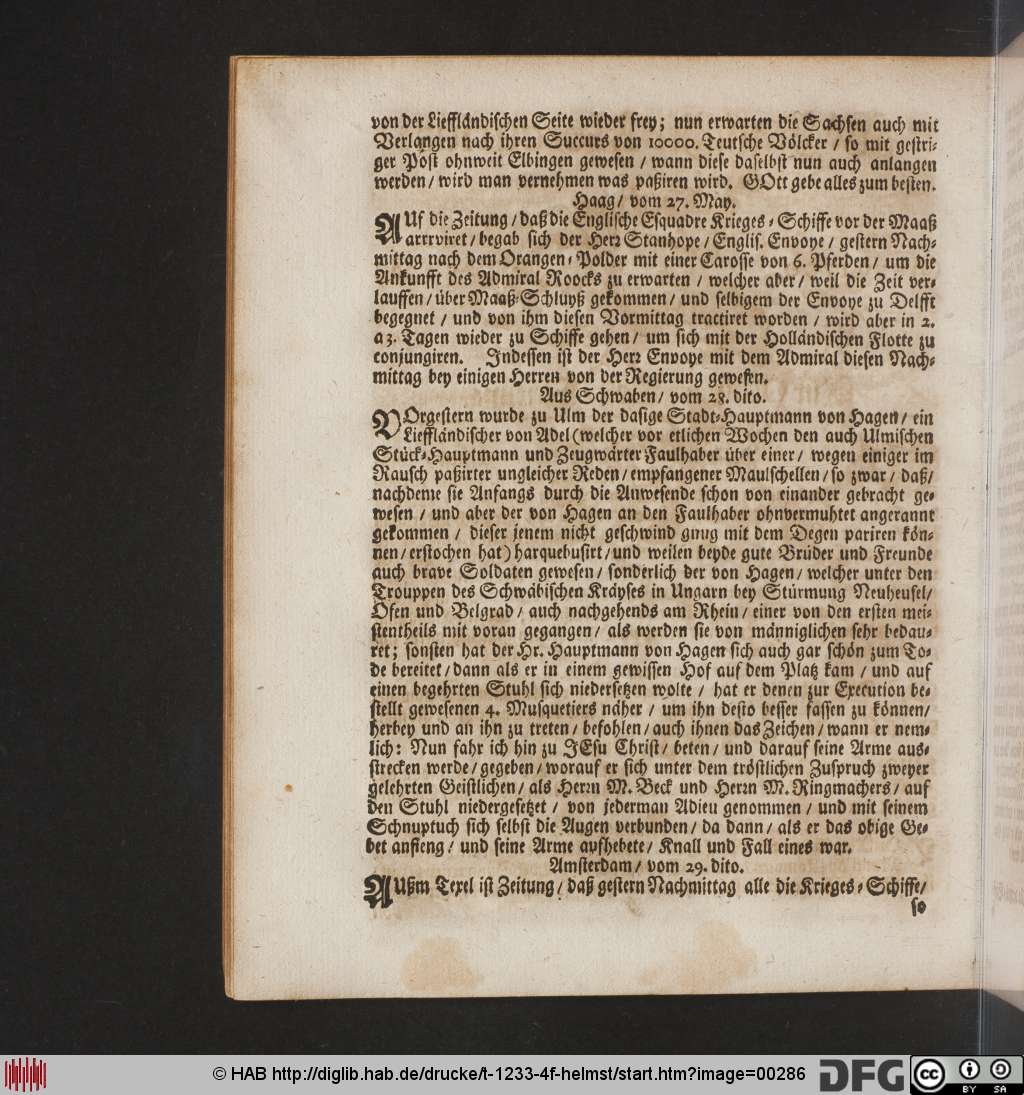 von der Liefflåndischen Seite wieder frey; nun erwarten die Sachsen auch mit
Verlangen nach ihren Succurs von 10000. Teutsche Völcker / so mit gestri-
ger Post ohnweit Elbingen gewesen / wann diese daselbst nun auch anlangen
werden / wird man vernehmen was paßiren wird. GOtt gebe alles zum besten.
Haag / vom 27. May.
AUf die Zeitung / daß die Englische Esquadre Krieges-Schiffe vor der Maaß
arrrviret / begab sich der Herr Stanhope / Englis. Envoye / gestern Nach-
mittag nach dem Orangen-Polder mit einer Carosse von 6. Pferden / um die
Ankunfft des Admiral Roocks zu erwarten / welcher aber / weil die Zeit ver-
lauffen / über Maaß-Schluyß gekommen / und selbigem der Envoye zu Delfft
begegnet / und von ihm diesen Vormittag tractiret worden / wird aber in 2.
a 3. Tagen wieder zu Schiffe gehen / um sich mit der Holländischen Flotte zu
conjungiren. Indessen ist der Herr Envoye mit dem Admiral diesen Nach-
mittag bey einigen Herren von der Regierung gewesen.
Aus Schwaben / vom 28. dito.
VOrgestern wurde zu Ulm der dasige Stadt-Hauptmann von Hagen / ein
Liefflåndischer von Adel (welcher vor etlichen Wochen den auch Ulmischen
Stück-Hauptmann und Zeugwärter Faulhaber über einer / wegen einiger im
Rausch paßirter ungleicher Reden / empfangener Maulschellen / so zwar / daß /
nachdeme sie Anfangs durch die Anwesende schon von einander gebracht ge-
wesen / und aber der von Hagen an den Faulhaber ohnvermuhtet angerannt
gekommen / dieser jenem nicht geschwind gnug mit dem Degen pariren kön-
nen / erstochen hat) harquebusirt / und weilen beyde gute Brüder und Freunde
auch brave Soldaten gewesen / sonderlich der von Hagen / welcher unter den
Trouppen des Schwäbischen Kräyses in Ungarn bey Stürmung Neuheusel /
Ofen und Belgrad / auch nachgehends am Rhein / einer von den ersten mei-
stentheils mit voran gegangen / als werden sie von männiglichen sehr bedau-
ret; sonsten hat der Hr. Hauptmann von Hagen sich auch gar schön zum To-
de bereitet / dann als er in einem gewissen Hof auf dem Platz kam / und auf
einen begehrten Stuhl sich niedersetzen wolte / hat er denen zur Execution be-
stellt gewesenen 4. Musquetiers näher / um ihn desto besser fassen zu können /
herbey und an ihn zu treten / befohlen / auch ihnen das Zeichen / wann er nem-
lich: Nun fahr ich hin zu JEsu Christ / beten / und darauf seine Arme aus-
strecken werde / gegeben / worauf er sich unter dem tröstlichen Zuspruch zweyer
gelehrten Geistlichen / als Herrn M. Beck und Herrn M. Ringmachers / auf
den Stuhl niedergesetzet / von jederman Adieu genommen / und mit seinem
Schnuptuch sich selbst die Augen verbunden / da dann / als er das obige Ge-
bet anfieng / und seine Arme aufhebete / Knall und Fall eines war.
Amsterdam / vom 29. dito.
AUßm Texel ist Zeitung / daß gestern Nachmittag alle die Krieges-Schiffe /
so
© HAB http://diglib.hab.de/drucke/t-1233-4f-helmst/start.htm?image=00286
DFG
cc
BY SA